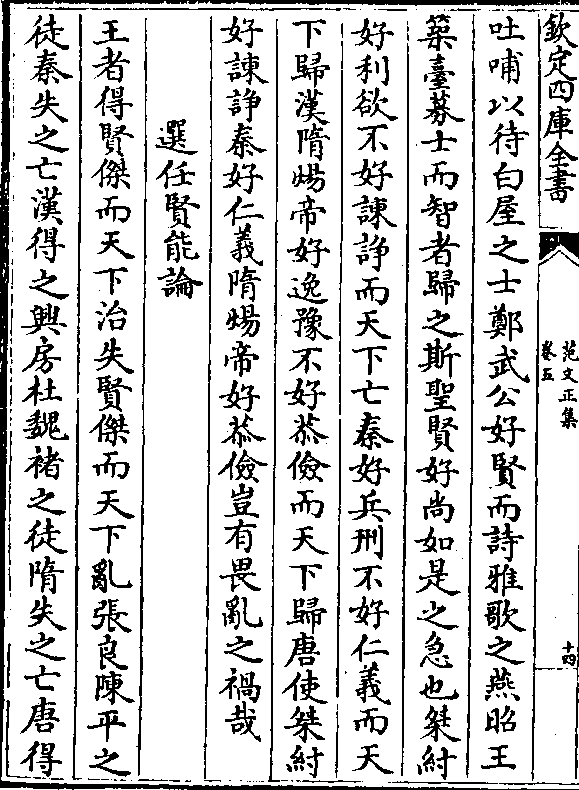 欽定四庫全書
范文正集
卷五
十四
吐哺以待白屋之士鄭武公好賢而詩雅歌之燕昭王
築臺募士而智者歸之斯聖賢好尚如是之急也桀紂
好利欲不好諫諍而天下亡秦好兵刑不好仁義而天
下歸漢隋煬帝好逸豫不好恭儉而天下歸唐使桀紂
好諫諍秦好仁義隋煬帝好恭儉豈有畏亂之禍哉
選任賢能論
王者得賢傑而天下治失賢傑而天下亂張良陳平之
徒秦失之亡漢得之興房杜魏褚之徒隋失之亡唐得